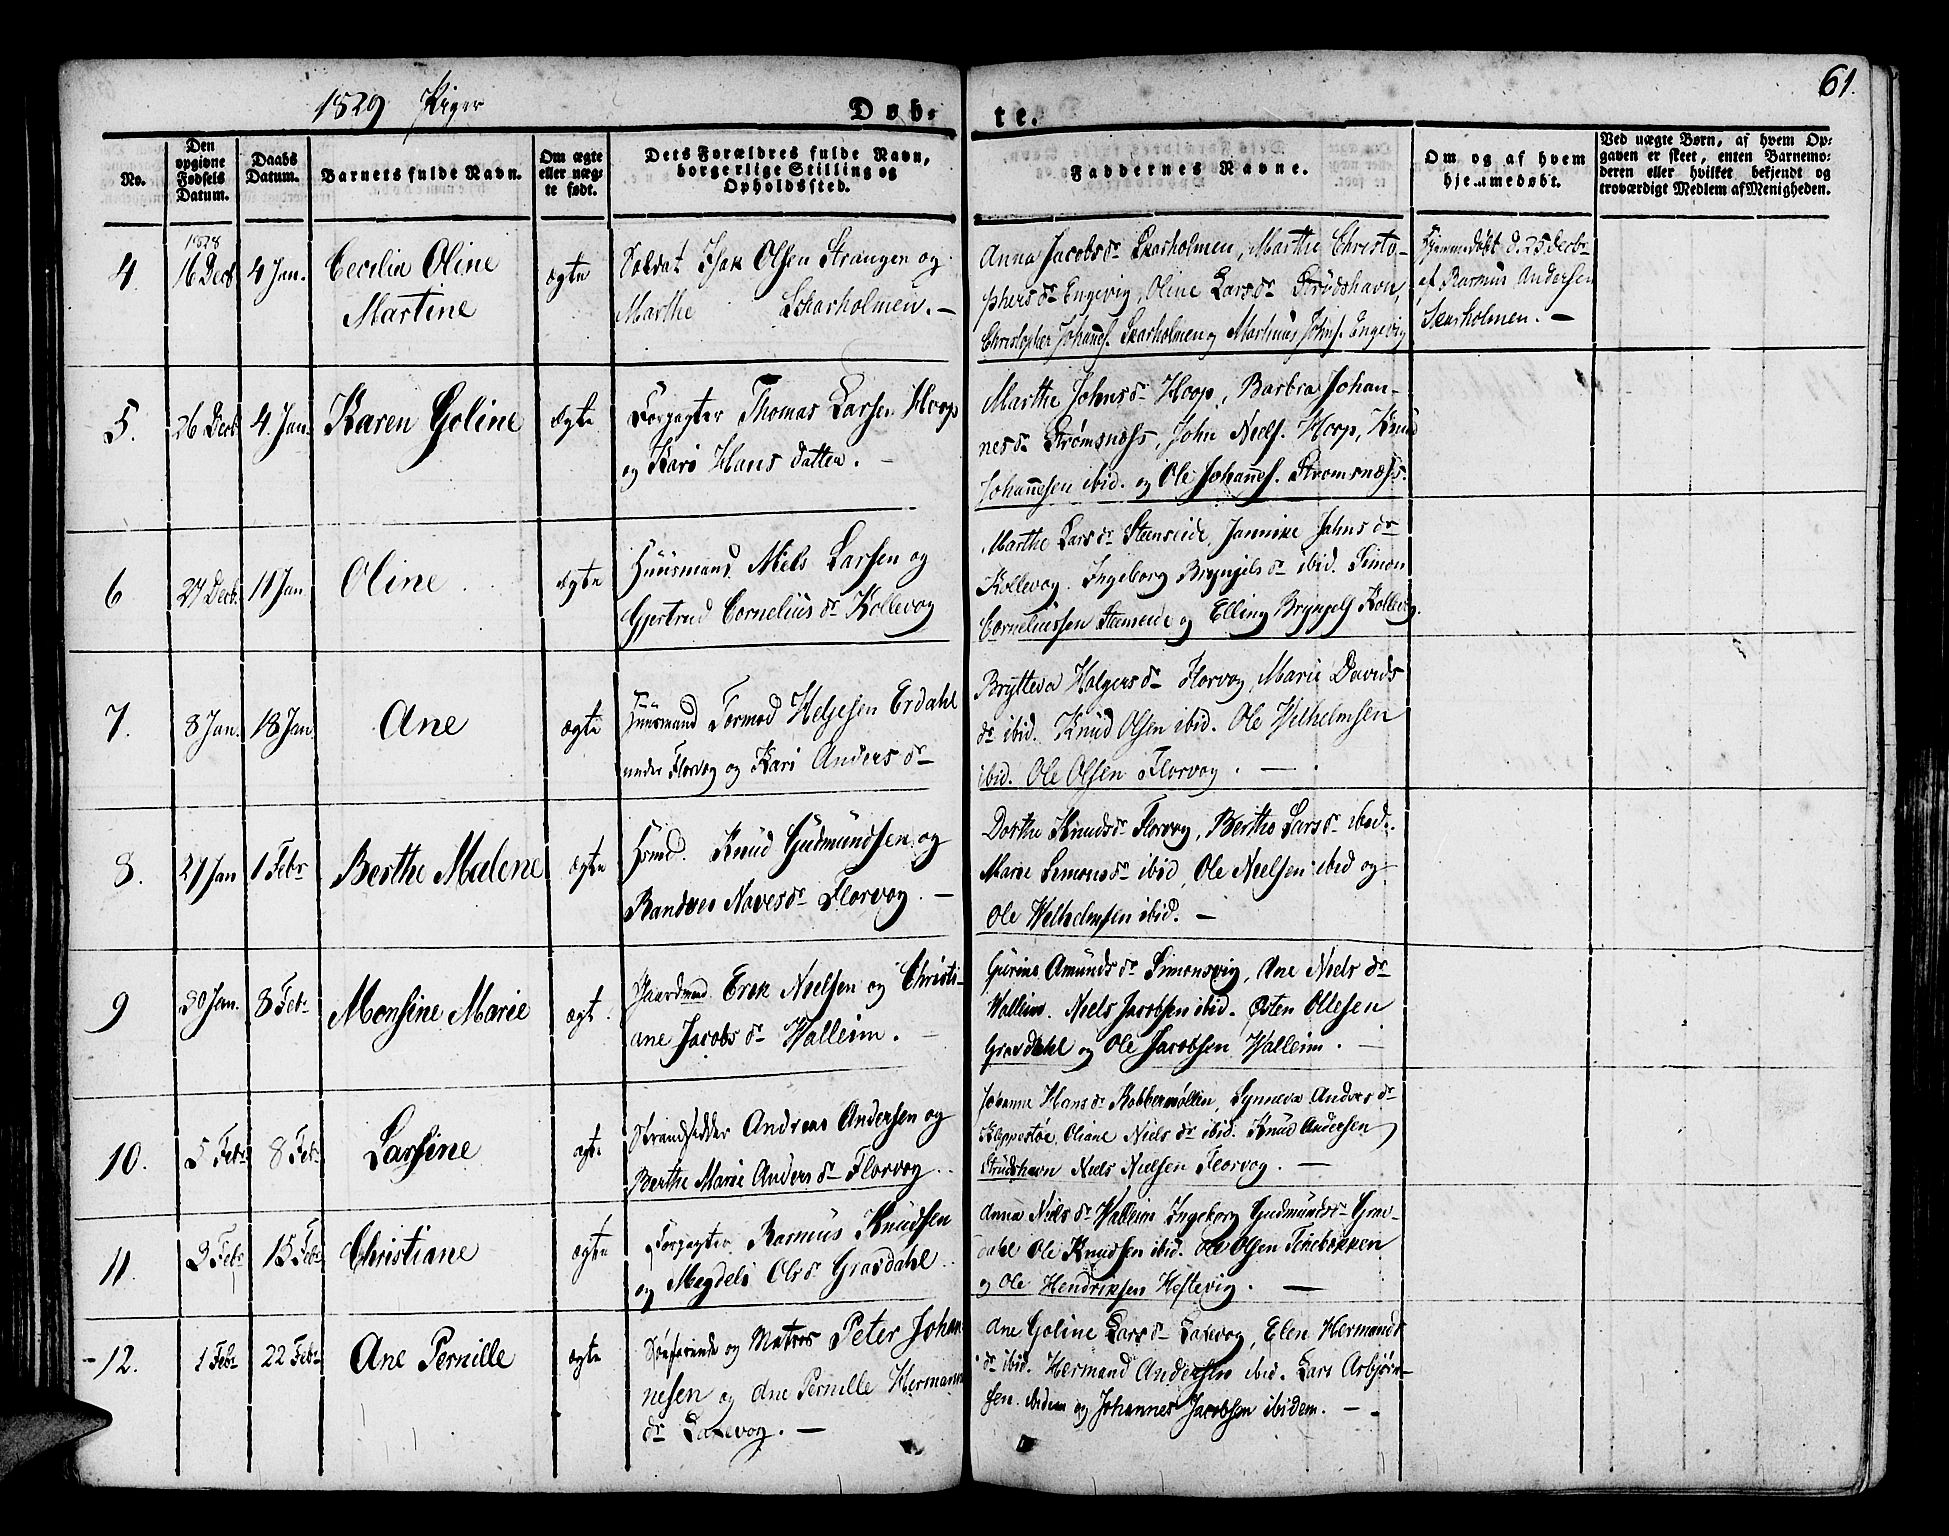 1829 Piger
Døb-
te.
61.
No.
Den opgivne Fødsels Datum.
Daabs Datum.
Barnets fulde Navn.
Om ægte eller uæg-te født.
Dets Forældres fulde Navn, borgerlige Stilling og Opholdsfted.
Faddernes Navne.
Om og af hvem hjemmedøbt.
Ved uægte Børn, af hvem Op-gaven er skeet, enten Barnemo-deren eller hvilket bekjendt og troværdigt Medlem af Menigheden.
4.
1828
16 Decb
4 Jan.
Cecilia Oline
Martine
ægte
Soldat Isak Olsen Strangen og
Marthe Skarholmen. —
Anna Jacobsdr Skarholmen, Marthe Christo-
phersdr Engevig, Oline Larsdr Strudshavn,
Christopher Johannes. Skarholmen og Martinus Johns. Engevig
Hjemmedøbt d. 25 Decbr
af Rasmus Andersen
Skarholmen. —
5.
26 Decb
4. Jan.
Karen Goline
Ægte
Forpagter Thomas Larsen Hoop
og Kari Hans datter. —
Marthe Johnsdr Hoop, Barbra Johan-
nesdr Strømsnæss, John Niels. Hoop, Knud
Johannesen ibid. og Ole Johannes. Strømsnæss.
6
27 Decb.
11 Jan.
Oline
ægte
Huusmand Niels Larsen og
Gjertrud Corneliusdr Kollevog
Marthe Larsdr Steenseide, Jannike Johnsdr
Kollevog. Ingeborg Bryngelsdr ibid. Simon
Corneliussen Steenseide og Elling Bryngels Kollevog.
7.
8 Jan.
18 Jan.
Ane
ægte
Huusmand Tormod Helgesen Erdahl
under Florvog og Kari Andersdr
Bryteva Holgersdr Florvog, Marie Davids
dr ibid. Knud Olsen ibid. Ole Wilhelmsen
ibid. Ole Olsen Florvog. —
8.
27 Jan
1 Febr
Berthe Malene
ægte
Hsmd. Knud Gudmundsen og
Randvei Navesdr Florvog. —
Dorthe Knudsdr Florvog, Berthe Larsdr ibid.
Marie Simonsdr ibid, Ole Nielsen ibid og
Ole Wilhelmsen ibid. —
9
30 Jan.
8 Feb.
Monsine Marie
ægt.
Gaardmand Erik Nielsen og Christi-
ane Jacobsdr Walleim. —
Gurine Amundsdr Simonsvig, Ane Nielsdr
Walleim. Niels Jacobsen ibid. Østen Ollesen
Gravdahl og Ole Jacobsen Walleim. —
10.
5 Febr
8 Febr
Larsine
ægte
Strandsidder Andreas Andersen og
Berthe Marie Andersdr Florvog.
Johanne Hansdr Kobbermøllen, Synneva Andersdr
Kleppestøe, Oliane Nielsdr ibid. Knud Andersen
Strudshavn Niels Nielsen Florvog. —
11.
3 Febr
15 Febr
Christiane
ægte
Forpagter Rasmus Knudsen
og Magdeli Olsdr Gravdahl.
Anna Nielsdr Walleim Ingeborg Gudmundsdr Grav-
dahl Ole Knudsen ibid. Ole Olsen Tenebækken
og Ole Hendriksen Heftevig. —
12.
1 Febr
22 Febr
Ane Pernille
ægte
Søefarende og Matros Peter Johan-
nesen og Ane Pernille Hermans
dr Laxevog. —
Ane Goline Larsdr Laxevog, Elen Hermands
dr ibid. Hermand Andersen ibid. Lars Asbjørn-
sen ibidem og Johannes Jacobsen ibidem. —